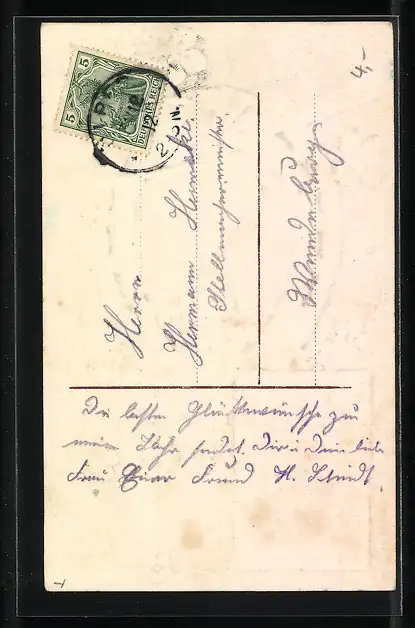 4,-
5 5
DEUTSCHES REICH
2-3N.
Herrn
Hermann
Stellmachermeister
Die besten Glückwünsche zum
neuen Jahr sendet Dir u Deine liebe
Frau Euer Freund H.